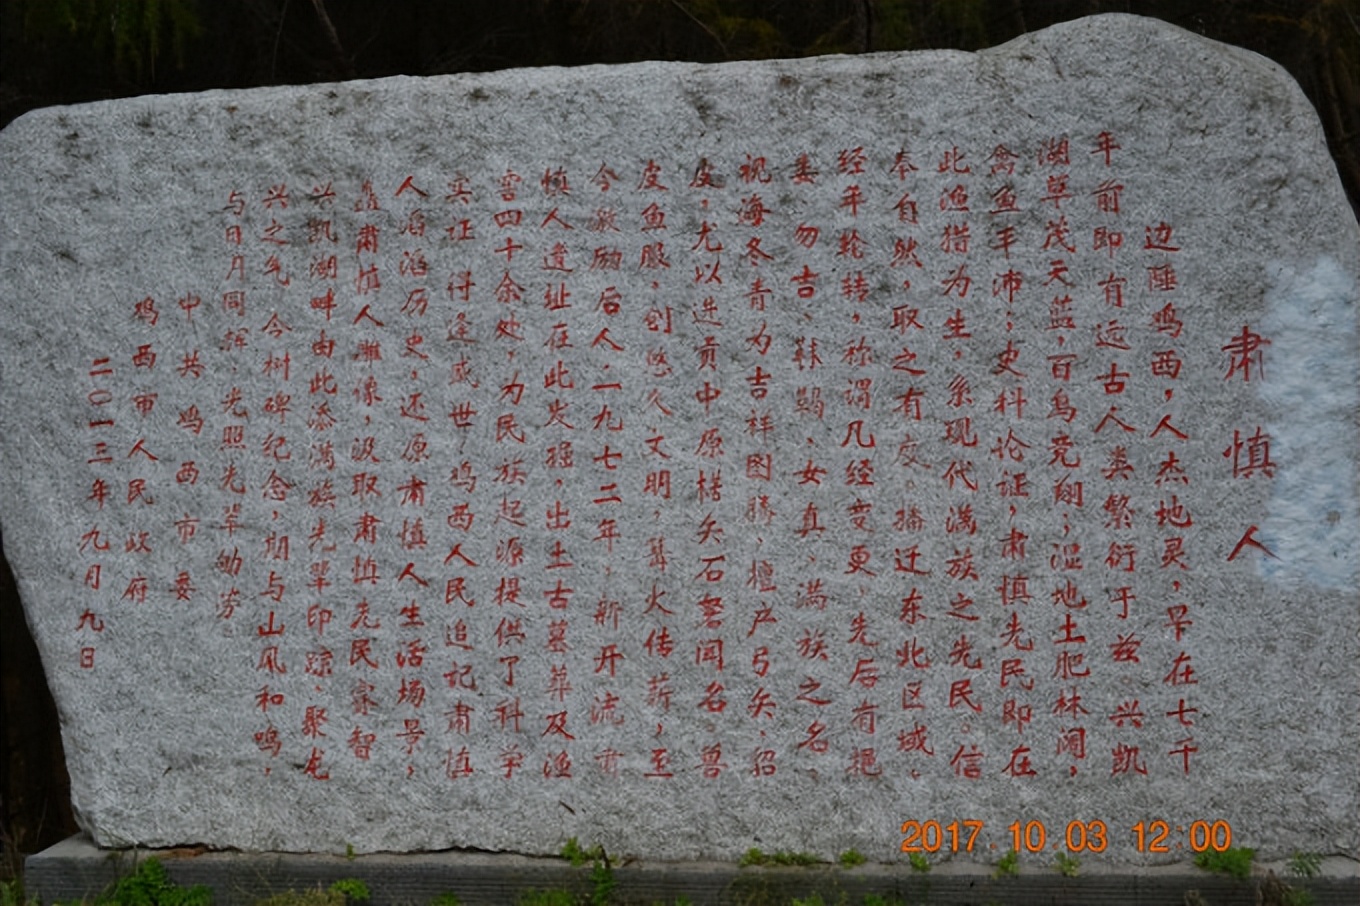 肃慎人
边陲鸡西，人杰地灵，早在七千
年前即有远古人类繁衍于兹。兴凯
湖草茂天蓝，百鸟竞翔；湿地土肥林阔，
禽鱼丰沛；史料论证，肃慎先民即在
此渔猎为生，系现代满族之先民。信
奉自然，取之有度。播迁东北区域，
经年轮转，称谓几经变更，先后有挹
娄、勿吉、靺鞨、女真、满族之名。
视海冬青为吉祥图腾，擅产弓矢、貂
皮，尤以进贡中原楛矢石砮闻名。兽
皮鱼服，创悠久文明，薪火传薪，至
今激励后人。一九七二年，新开流肃
慎人遗址在此发掘，出土古墓葬及渔
窖四十余处，为民族起源提供了科学
实证。得逢盛世，鸡西人民追记肃慎
人滔滔历史，还原肃慎人生活场景，
矗肃慎人雕像，汲取肃慎先民家智
兴凯湖畔由此添满族先辈印踪，聚龙
兴之气。今树碑纪念，期与山风和鸣，
与日月同辉，光照先辈劬劳。
中共鸡西市委
鸡西市人民政府
二〇一三年九月九日
2017.10.03 12:00